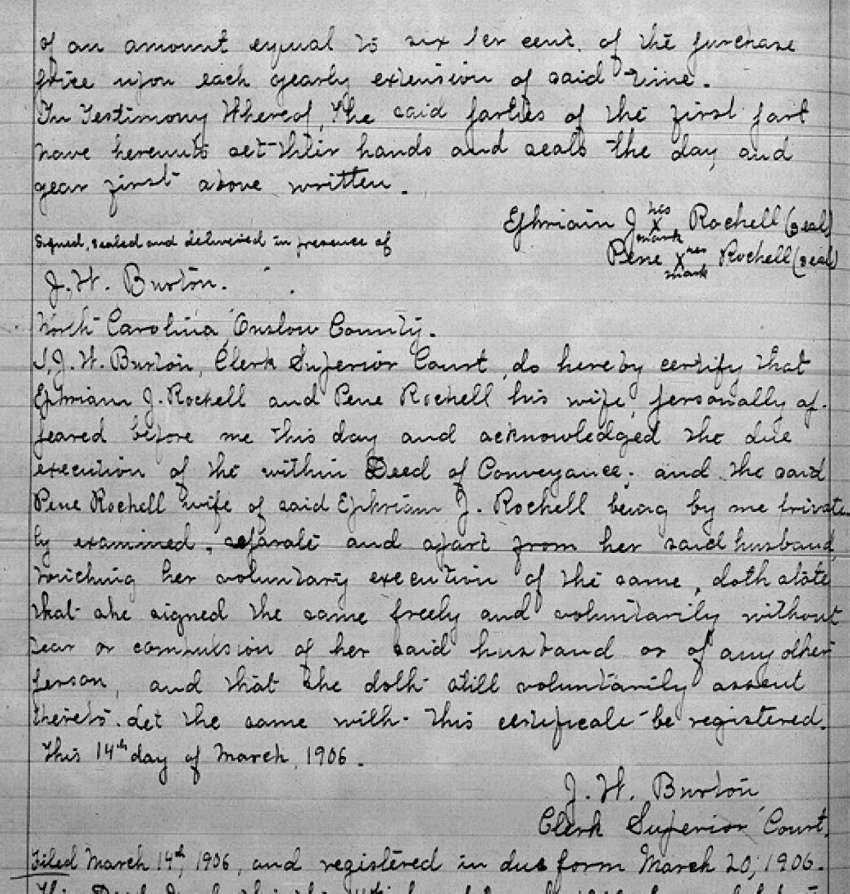 of an amount equal to six per cent. of the purchase
price upon each yearly extension of said time.
In Testimony Whereof, The said parties of the first part
have hereunto set their hands and seals the day and
year first above written.
Ephriam J. his X mark Rochell (seal)
Signed, sealed and delivered in presence of
Pene her X mark Rochell (seal)
J. W. Burton.
North Carolina, Onslow County.
I, J. W. Burton, Clerk Superior Court, do hereby certify that
Ephriam J. Rochell and Pene Rochell his wife, personally ap-
peared before me this day and acknowledged the due
execution of the within Deed of Conveyance; and the said
Pene Rochell wife of said Ephriam J. Rochell being by me private
ly examined, separate and apart from her said husband,
touching her voluntary execution of the same, doth state
that she signed the same freely and voluntarily without
fear or compulsion of her said husband or of any other
person, and that she doth still voluntarily assent
thereto. Let the same with this certificate be registered.
This 14th day of March, 1906.
J. W. Burton
Clerk Superior Court.
Filed March 14th, 1906, and registered in due form March 20, 1906.